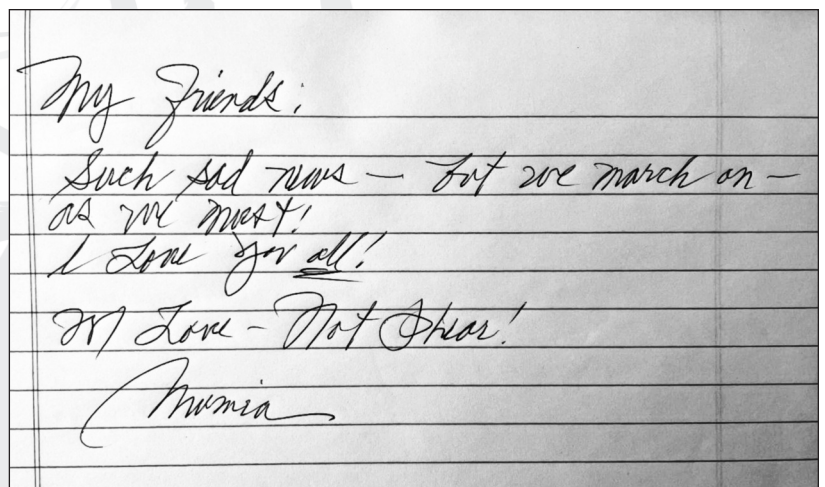 My Friends:
Such sad news — but we march on —
as we must!
I Love You all!
Love – Not Phear!
Mumia